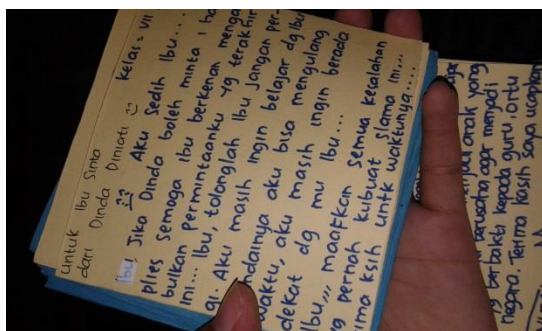 Untuk Ibu Sinta
dari Dinda Diniati Kelas = VII
Ibu, Aku Sedih Ibu...
Jika Dinda boleh minta 1
plies semoga ibu berkenan
bulkan permintaanku yg terakhir
ini... Ibu, tolonglah Ibu jangan per-
g. Aku masih ingin belajar dg Ibu
ndainya aku bisa mengulang
waktu, aku masih ingin berada
dekat dg mu Ibu...
Ibu,,, maafkan semua kesalahan
pernah kubuat slama ini...
ima ksih untk waktunya...
anak yang
berusaha agar menjadi
berbakti kepada guru, ortu
negara. Terima kasih saya ucapkan